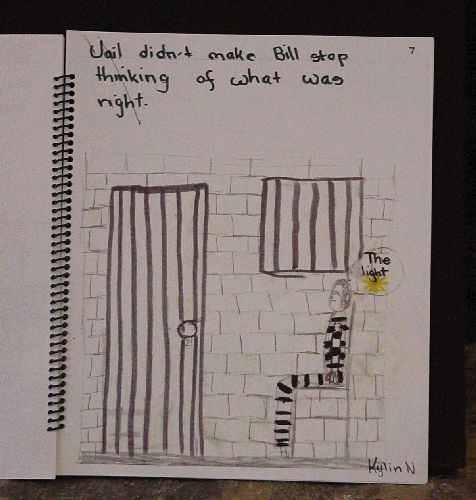 Jail didn't make Bill stop
7
thinking of what was
right.
The
light
Kylin N